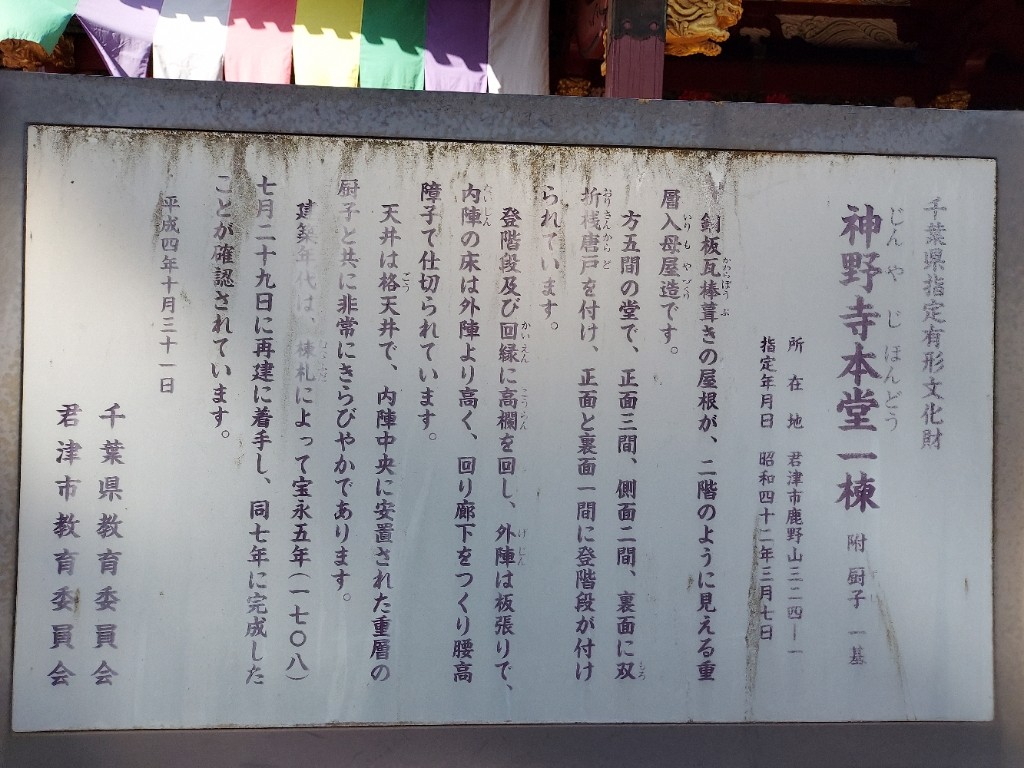 千葉県指定有形文化財
神野寺本堂一棟 附 厨子 一基
じんやじほんどう
所在地 君津市鹿野山三二四―一
指定年月日 昭和四十二年三月七日
銅板瓦棒葺きの屋根が、二階のように見える重
かわらぼうぶ
層入母屋造です。
いりもやづくり
方五間の堂で、正面三間、側面二間、裏面に双
もろ
折桟唐戸を付け、正面と裏面一間に登階段が付け
おりさんからど
られています。
登階段及び回縁に高欄を回し、外陣は板張りで、
かいえん こうらん げじん
内陣の床は外陣より高く、回り廊下をつくり腰高
ないじん
障子で仕切られています。
天井は格天井で、内陣中央に安置された重層の
ごう
厨子と共に非常にきらびやかであります。
建築年代は、棟札によって宝永五年(一七〇八)
七月二十九日に再建に着手し、同七年に完成した
ことが確認されています。
平成四年十月三十一日
千葉県教育委員会
君津市教育委員会